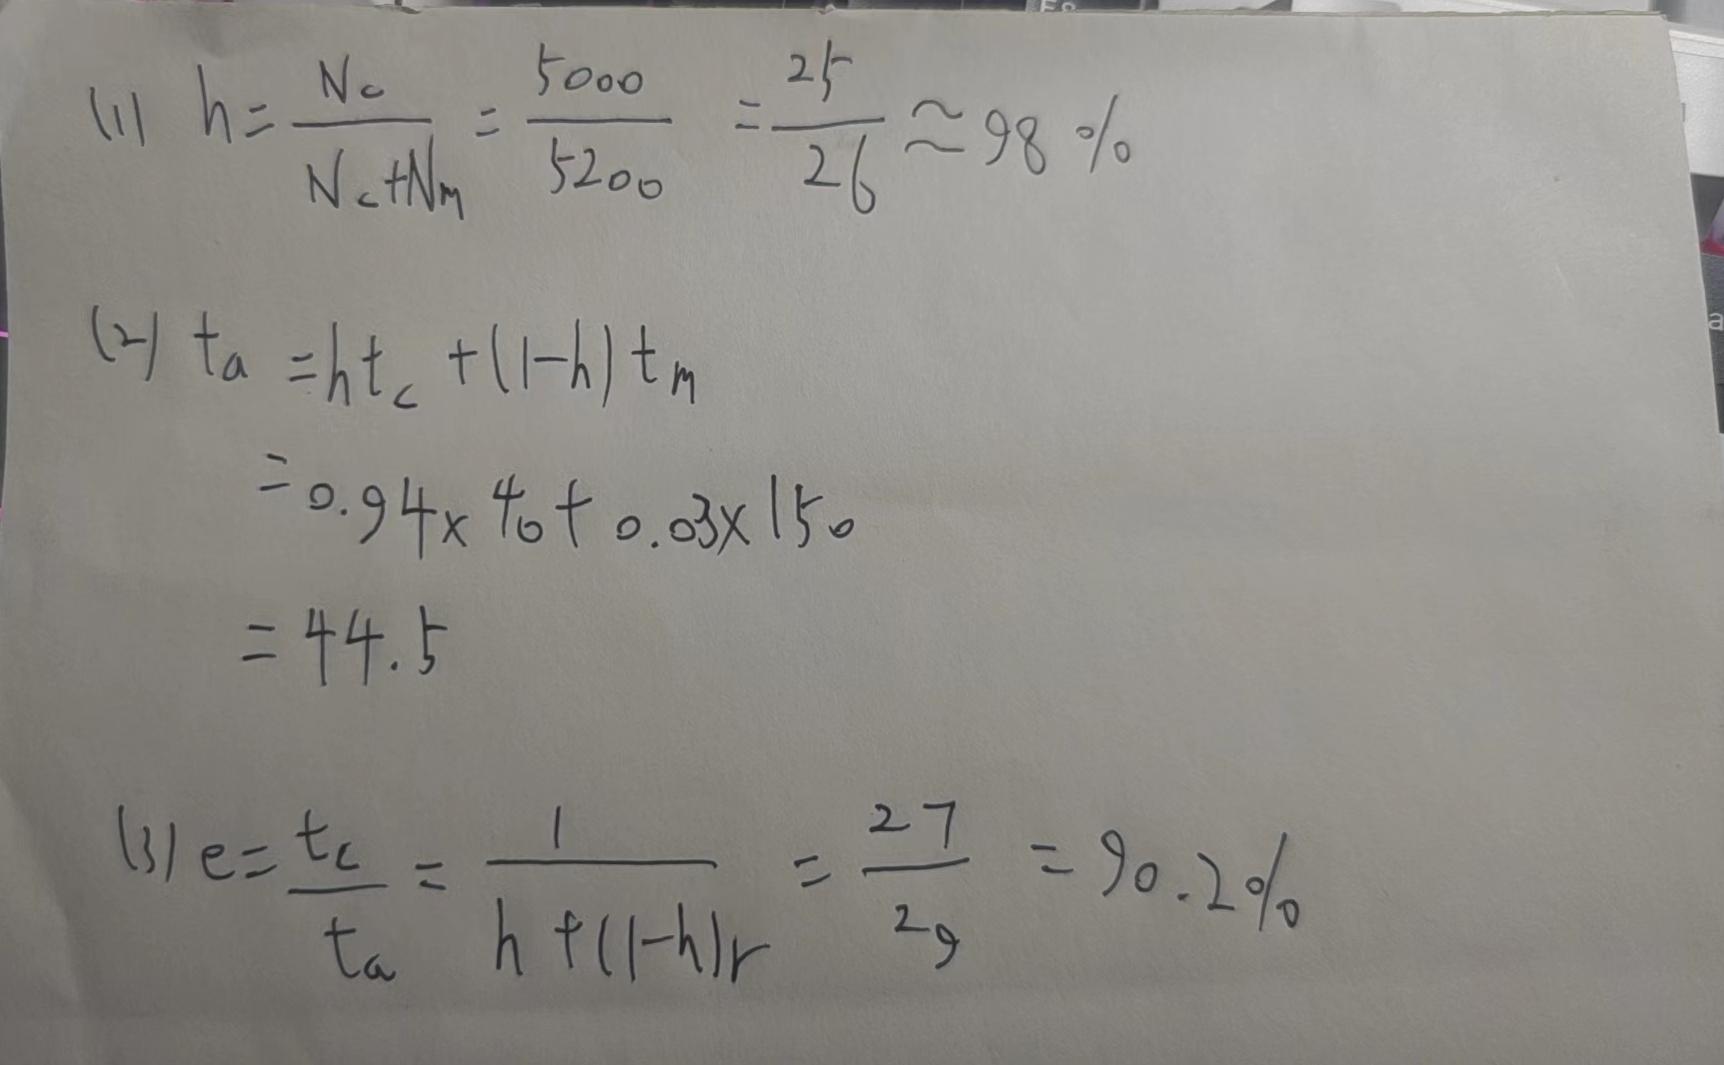 (1) h = Nc / (Nc+Nm) = 5000 / 5200 = 25 / 26 ≈ 98 %
(2) ta = htc + (1-h) tm
= 0.94 × 40 + 0.03 × 150
= 44.5
(3) e = tc / ta = 1 / (h + (1-h)r) = 27 / 29 = 90.2%